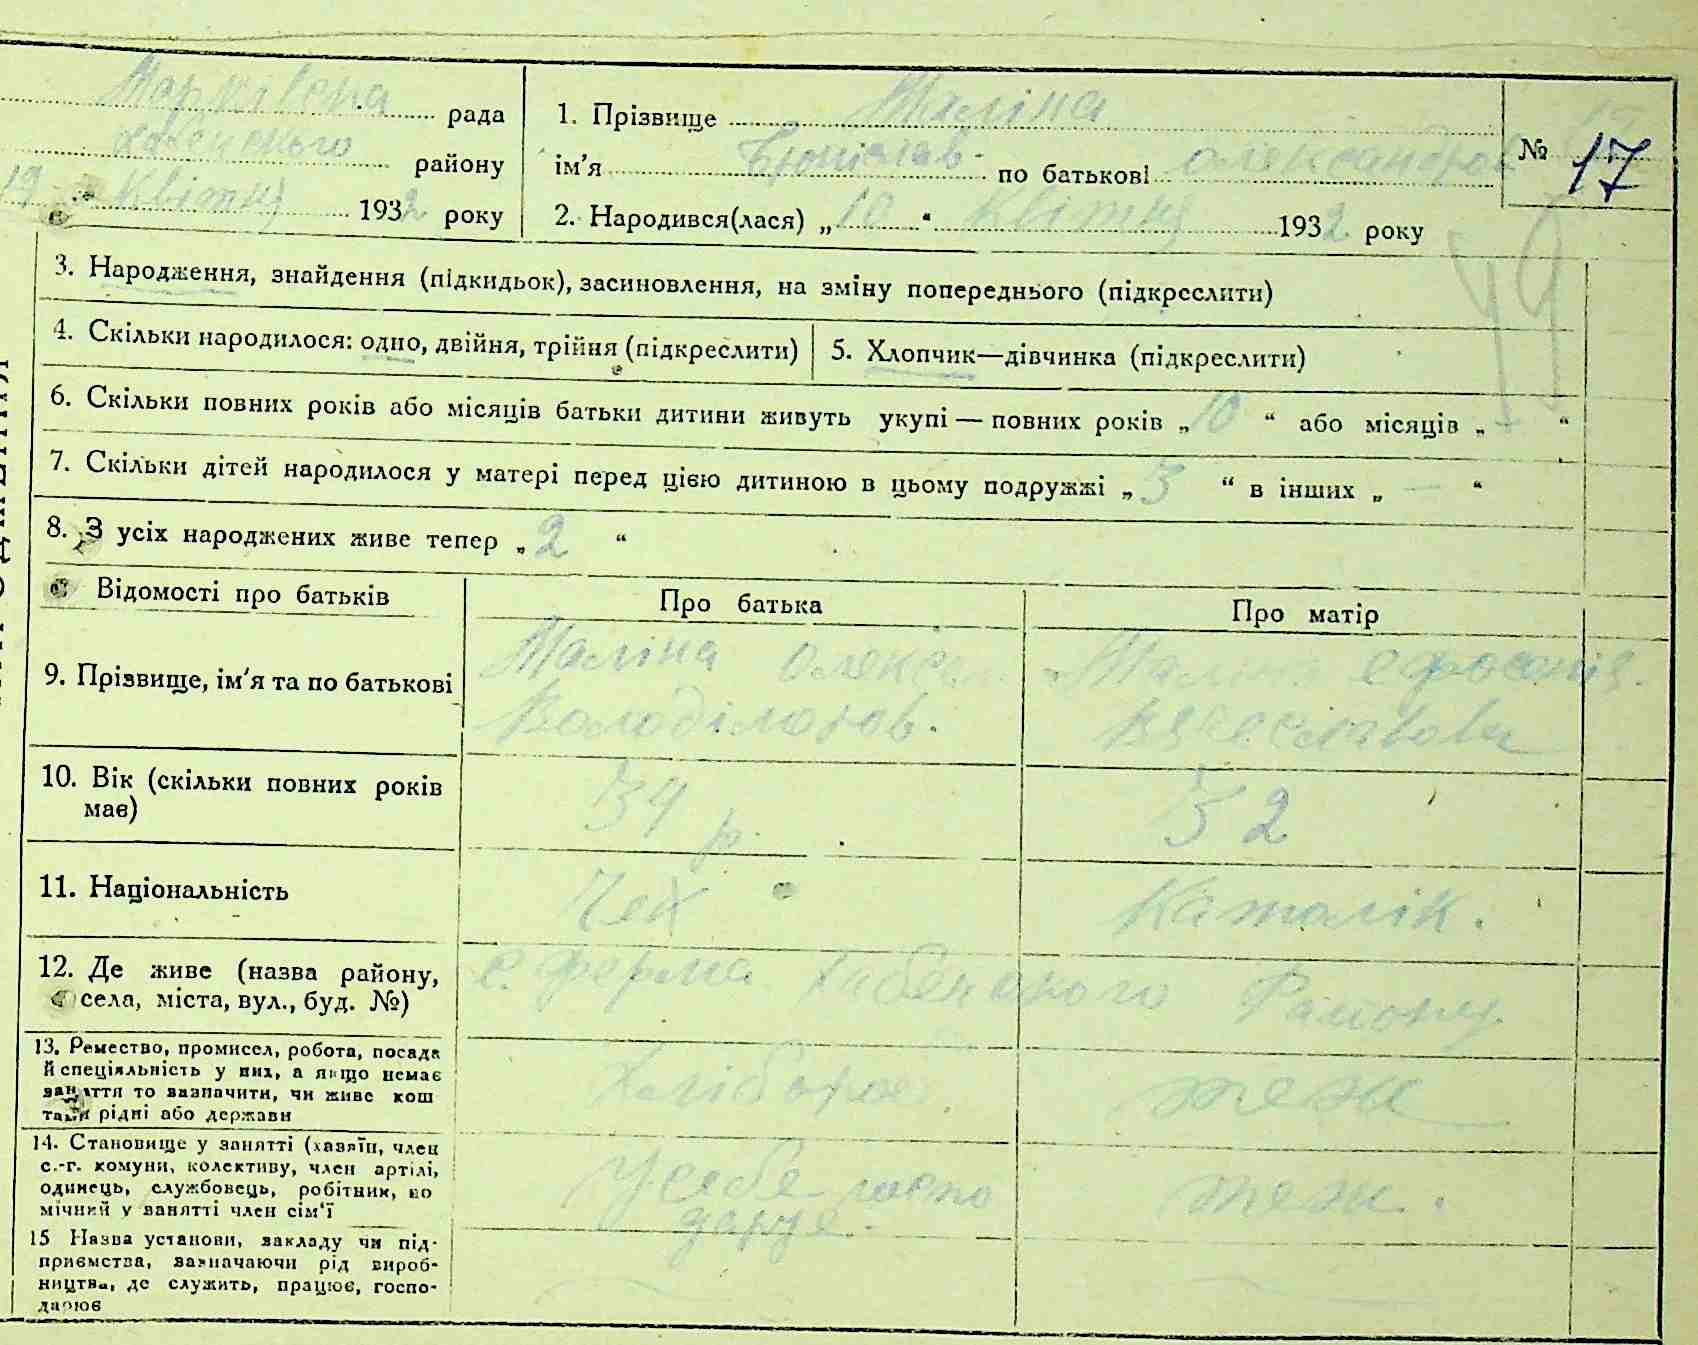 рада
району
19 Квітня 1932 року
1. Прізвище Маліна
ім'я Броніслав по батькові Олександров
№ 17
2. Народився(лася) „ 10 “ Квітня 1932 року
3. Народження, знайдення (підкидьок), засиновлення, на зміну попереднього (підкреслити)
4. Скільки народилося: одно, двійня, трійня (підкреслити)
5. Хлопчик—дівчинка (підкреслити)
6. Скільки повних років або місяців батьки дитини живуть укупі — повних років „ 10 “ або місяців „ - “
7. Скільки дітей народилося у матері перед цією дитиною в цьому подружжі „ 3 “ в інших „ — “
8. З усіх народжених живе тепер „ 2 “
Відомості про батьків
Про батька
Про матір
9. Прізвище, ім'я та по батькові
Маліна Олексан
Маліна
10. Вік (скільки повних років має)
34 р.
32
11. Національність
Чех
Католік.
12. Де живе (назва району, села, міста, вул., буд. №)
с. Ферма Району
13. Ремество, промисел, робота, посада
й спеціяльність у них, а якщо немає
заняття то зазначити, чи живе кош
тами рідні або держави
Хлібороб
теж
14. Становище у занятті (хазяїн, член
с.-г. комуни, колективу, член артілі,
одинець, службовець, робітник, по
мічний у занятті член сім'ї
У себе госпо
дарює.
теж.
15 Назва установи, закладу чи під-
приємства, зазначаючи рід вироб-
ництва, де служить, працює, госпо-
дарює